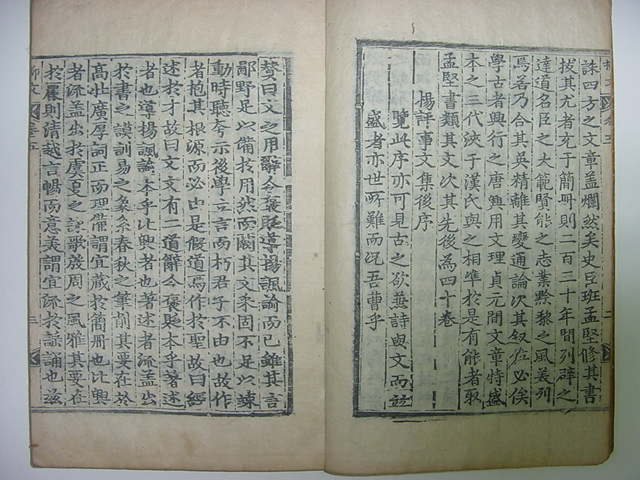 誅四方之文章蓋爛然矣史臣班孟堅修其書
拔其尤者充于簡冊則二百三十年間列辟之
達道名臣之大範賢能之志業黔黎之風美列
焉若乃合其英精離其變通論次其叙位必俟
學古者興行之唐興用文理貞元間文章特盛
本之三代浹于漢氏與之相準於是有能者取
孟堅書類其文次其先後為四十卷
楊評事文集後序
覽此序亦可見古之欲兼詩與文而並
盛者亦世所難而况吾曹乎
贊曰文之用辭令褒貶導揚諷諭而已雖其言
鄙野足以備於用然而闕其文采固不足以竦
動時聽夸示後學立言而朽君子不由也故作
者抱其根源而必由是假道焉作於聖故曰經
述於才故曰文文有二道辭令褒貶本乎著述
者也導揚諷諭本乎比興者也著述者流蓋出
於書之謨訓易之象係春秋之筆削其要在於
高壯廣厚詞正而理備謂宜藏於簡冊也比興
者流蓋出於虞夏之詠歌殷周之風雅其要在
於麗則清越言暢而意美謂宜流於謠誦也茲
柳文 卷五 三